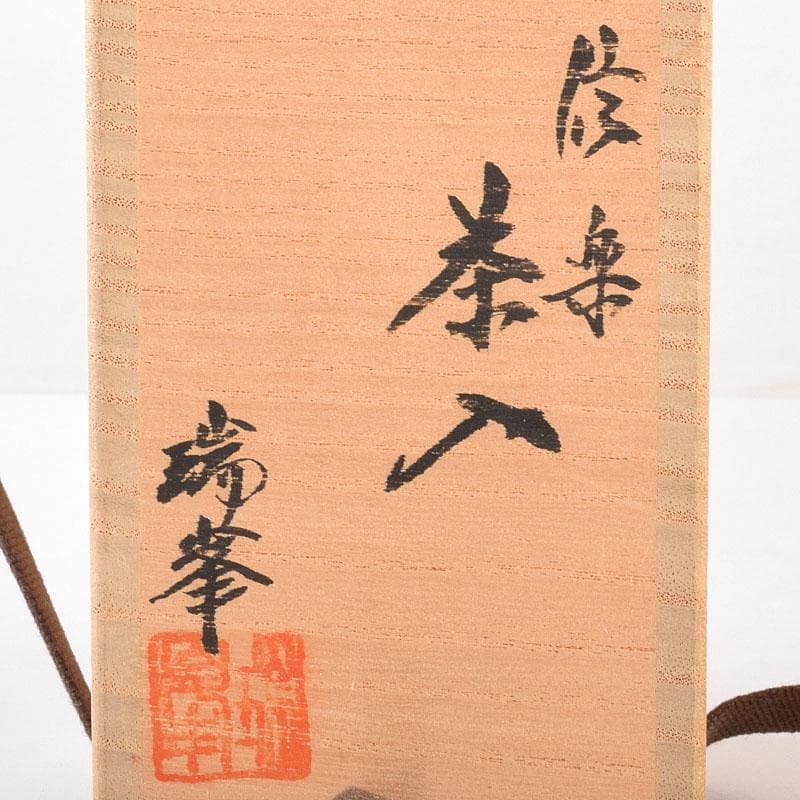 信楽
茶入
瑞峯